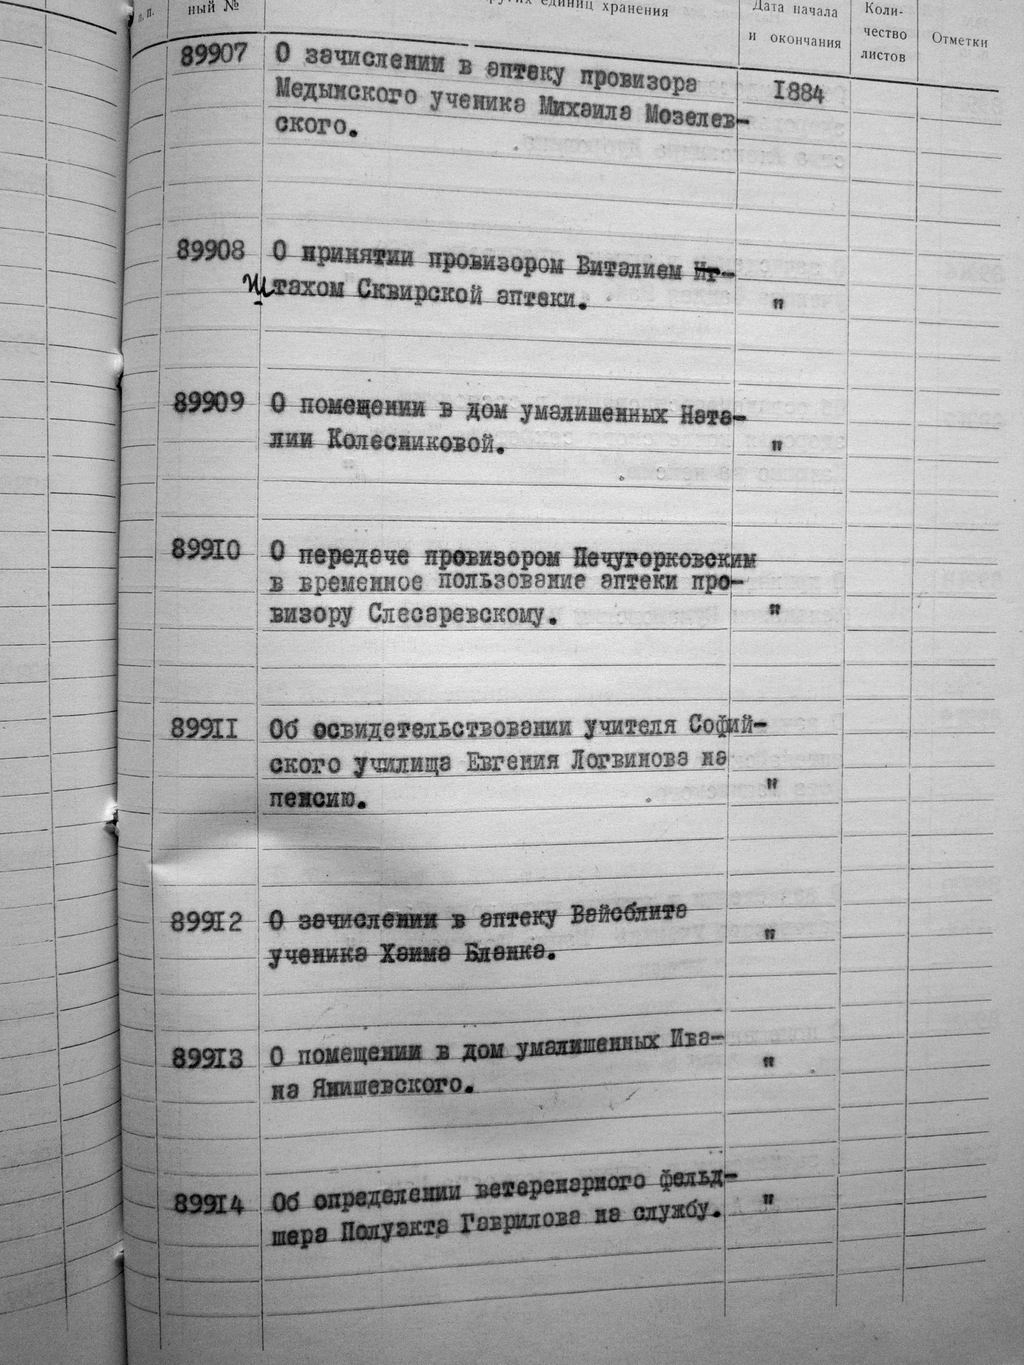 п. п.
ный №
других единиц хранения
Дата начала
и окончания
Коли-
чество
листов
Отметки
89907
О зачислении в аптеку провизора
Медынского ученика Михаила Мозелев-
ского.
1884
89908
О принятии провизором Виталием Иг-
Штахом Сквирской аптеки.
"
89909
О помещении в дом умалишенных Ната-
лии Колесниковой.
"
89910
О передаче провизором Печугорковским
в временное пользование аптеки про-
визору Слесаревскому.
"
89911
Об освидетельствовании учителя Софий-
ского училища Евгения Логвинова на
пенсию.
"
89912
О зачислении в аптеку Вайсблита
ученика Хаима Бланка.
"
89913
О помещении в дом умалишенных Ива-
на Янишевского.
"
89914
Об определении ветеренарного фельд-
шера Полуакта Гаврилова на службу.
"